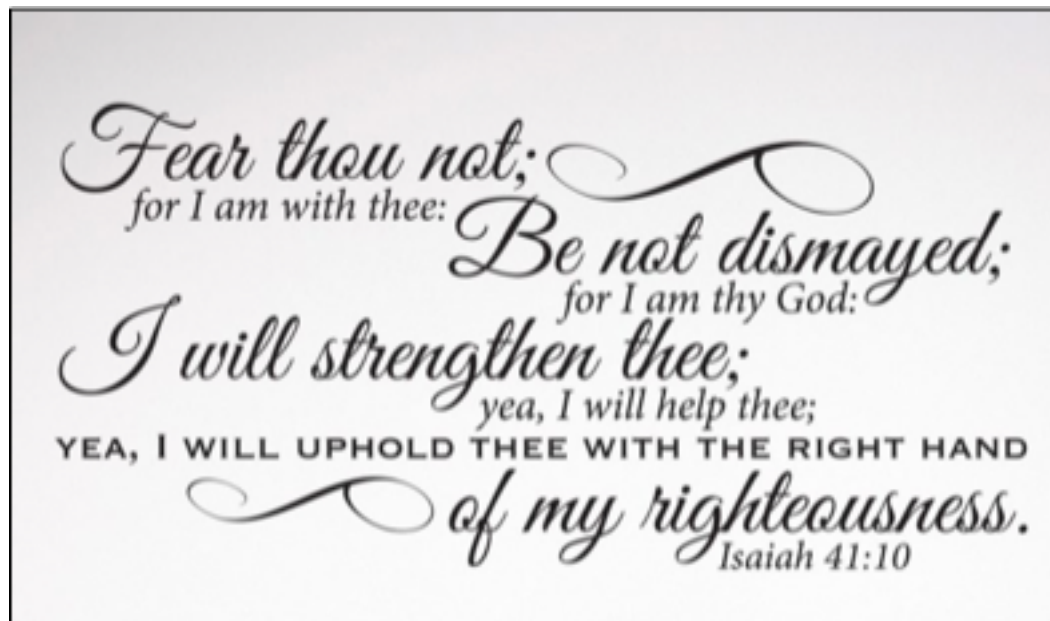 Fear thou not;
for I am with thee:
Be not dismayed;
for I am thy God:
I will strengthen thee;
yea, I will help thee;
YEA, I WILL UPHOLD THEE WITH THE RIGHT HAND
of my righteousness.
Isaiah 41:10